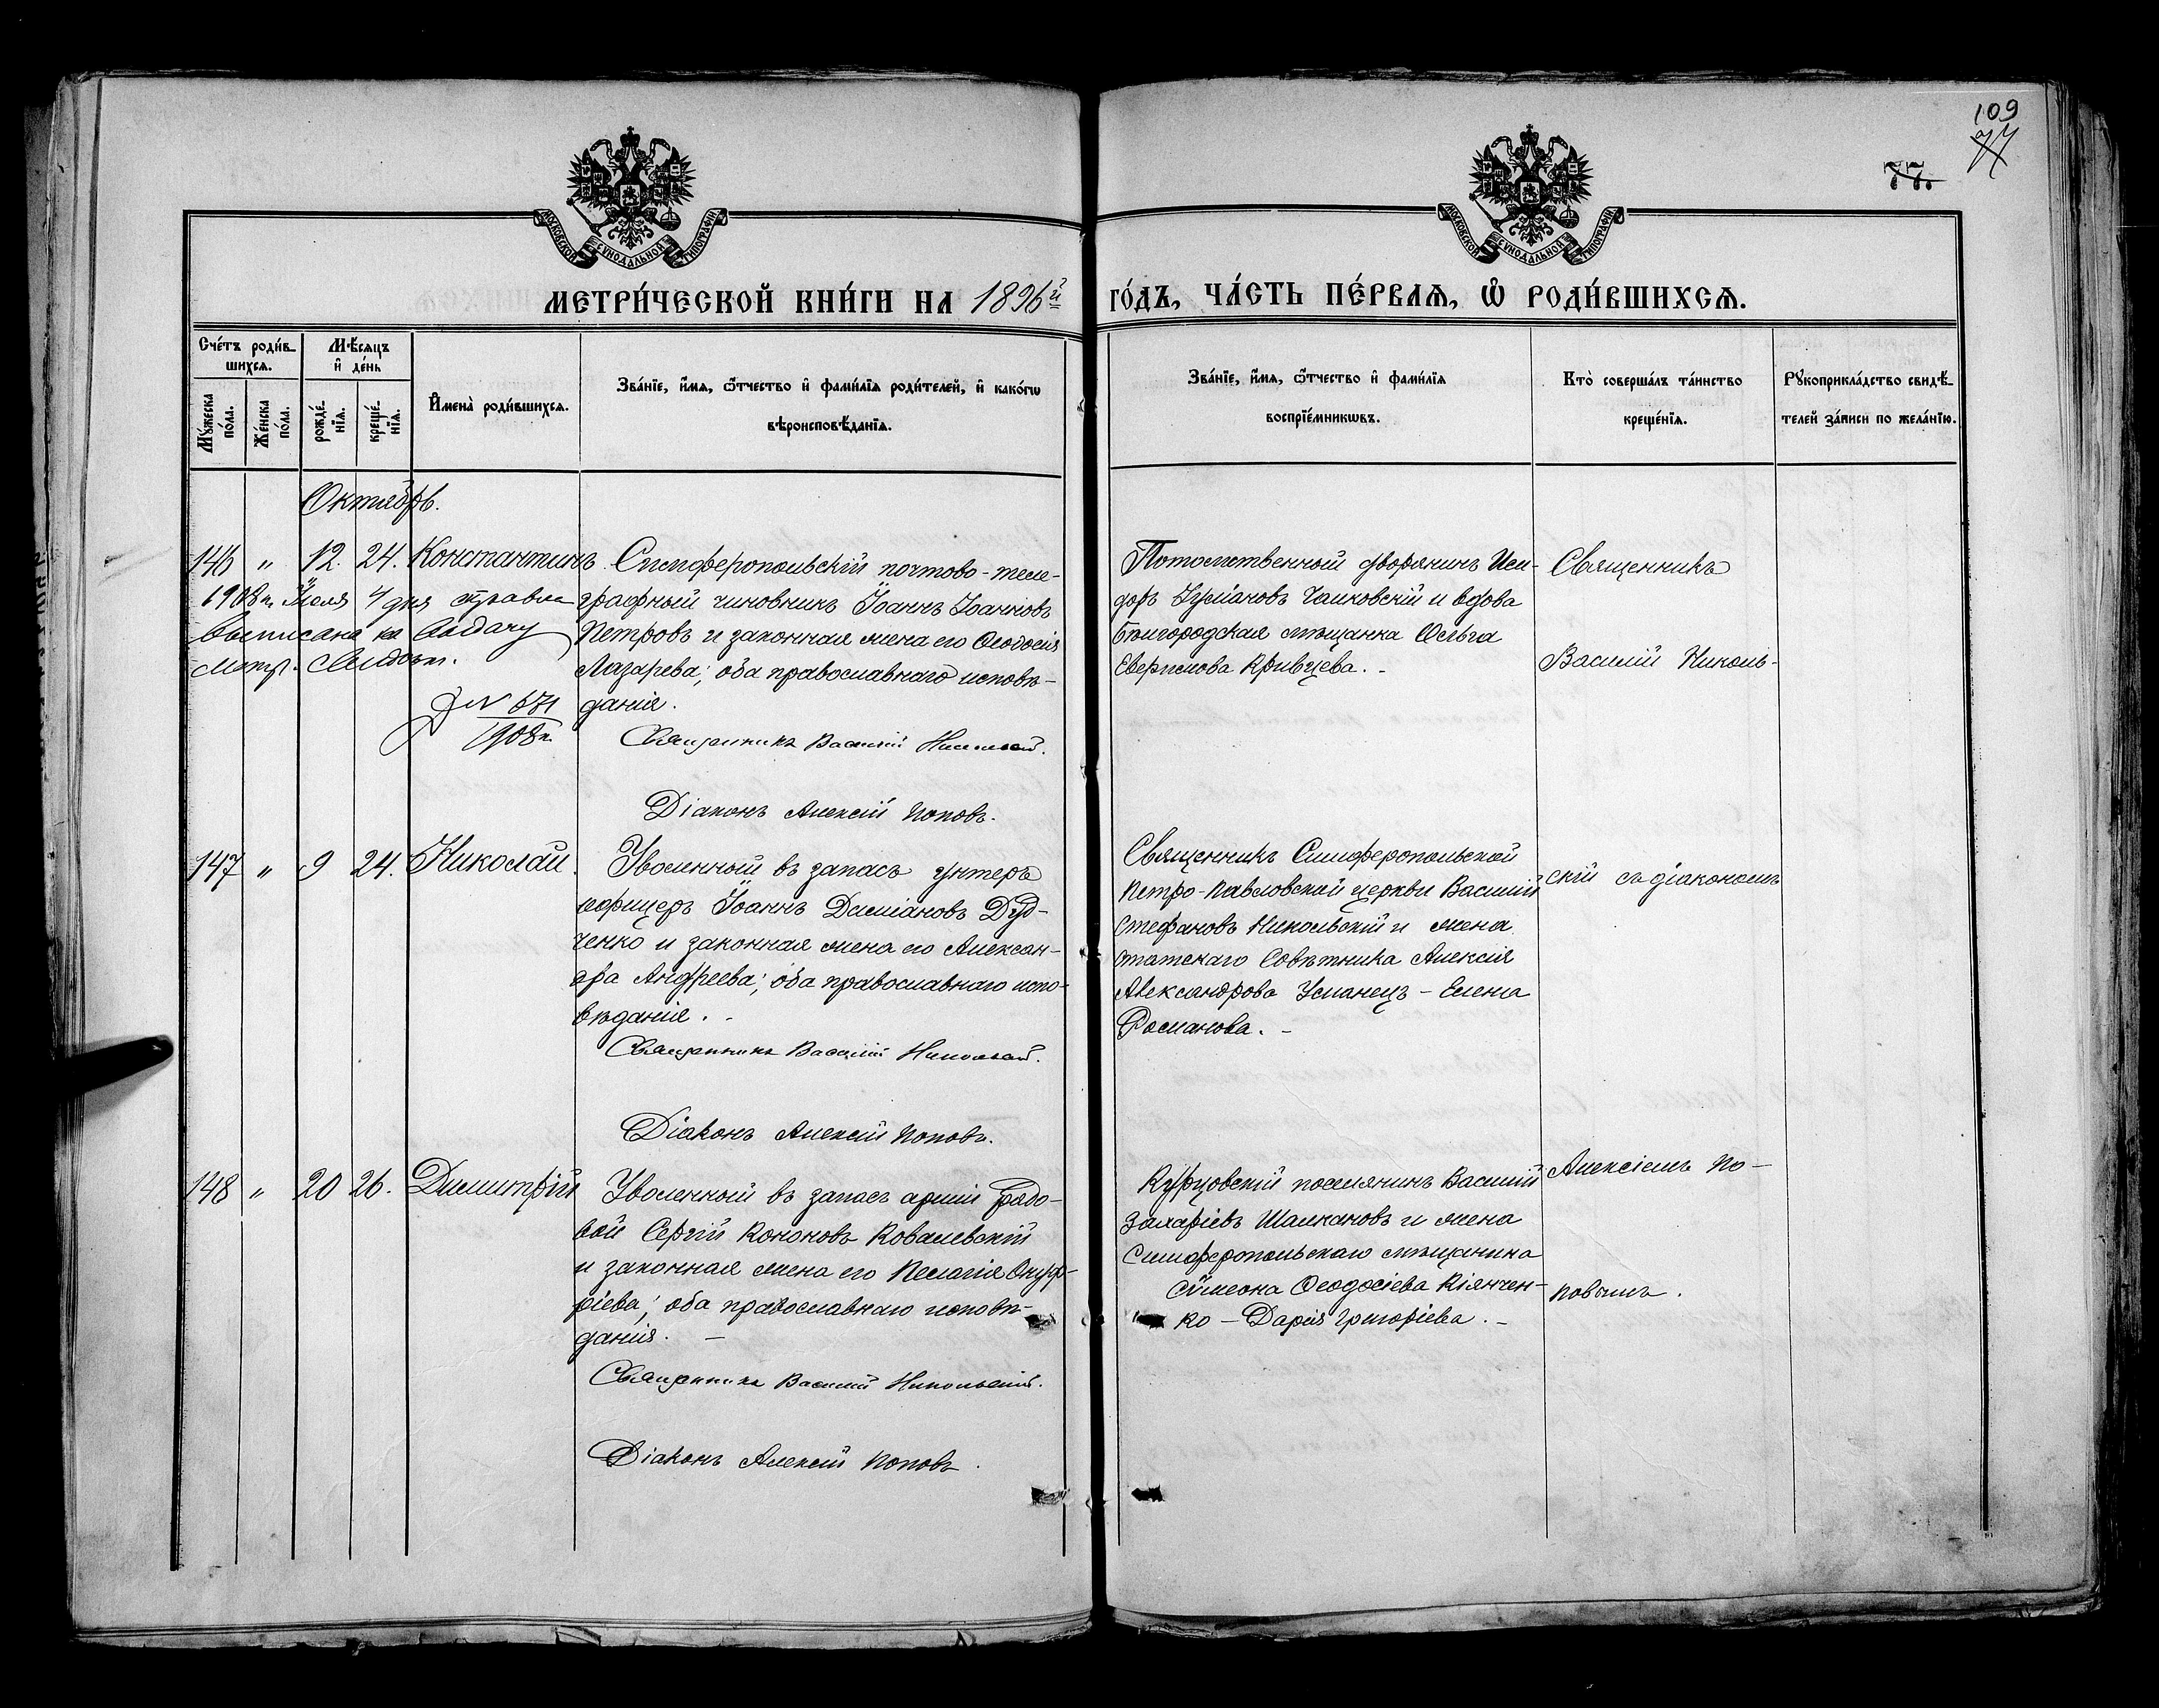 109
77
77.
МОСКОВСКОЙ СѴНОДАЛЬНОЙ ТИПОГРАФІИ
МОСКОВСКОЙ СѴНОДАЛЬНОЙ ТИПОГРАФІИ
МЕТРИ́ЧЕСКОЙ КНИ́ГИ НА 1896й
ГО́ДЪ, ЧА́СТЬ ПЕ́РВАѦ, Ѡ РОДИ́ВШИХСѦ.
Сче́тъ роди́в-
шихсѧ.
Мꙋ́жеска по́ла.
Же́нска по́ла.
Мѣ́сѧцъ
и҆ де́нь
рожде́-
нїѧ.
креще́-
нїѧ.
И҆мена̀ роди́вшихсѧ.
Зва́нїе, и҆́мѧ, ѻ҆́тчество и҆ фами́лїѧ роди́телей, и҆ како́гѡ
вѣроисповѣ́данїѧ.
Зва́нїе, и҆́мѧ, ѻ҆́тчество и҆ фами́лїѧ
воспрїе́мникѡвъ.
Кто̀ соверша́лъ та́инство
креще́нїѧ.
Рꙋкоприкла́дство свидѣ́-
телей за́писи по жела́нїю.
Октябрь.
146 " 12. 24. Константинъ.
1908 г. Іюля 4 дня справка
выписана на выдачу
метр. свидѣт.
№ 571
1908 г.
Симферопольскій почтово-теле-
графный чиновникъ Іоаннъ Іоанновъ
Петровъ и законная жена его Ѳеодосія
Лазарева; оба православнаго исповѣ-
данія.
Священникъ Василій Никольскій.
Діаконъ Алексій Поповъ.
Потомственный дворянинъ Иси-
доръ Куміановъ Чайковскій и вдова
Бѣлгородская мѣщанка Ольга
Кривцева. -
Священникъ
Василій Николь-
147 " 9 24. Николай.
Уволенный въ запасъ унтеръ
офицеръ Іоаннъ Даміановъ Дуд-
ченко и законная жена его Алексан-
дра Андреева; оба православнаго испо-
вѣданія. -
Священникъ Василій Никольскій.
Діаконъ Алексій Поповъ.
Священникъ Симферопольской
Петро-Павловской церкви Василій
Стефановъ Никольскій и жена
статскаго Совѣтника Алексія
Александрова Усманецъ - Елена
Романова. -
скій съ діакономъ
148 " 20 26. Димитрій
Уволенный въ запасъ арміи рядо-
вой Сергій Кононовъ Ковалевскій
и законная жена его Пелагія Онуф-
ріева; оба православнаго исповѣ-
данія. -
Священникъ Василій Никольскій.
Діаконъ Алексій Поповъ.
Курцовскій поселянинъ Василій
Захаріевъ Шалкановъ и жена
Симферопольскаго мѣщанина
Сѵмеона Ѳеодосіева Кіянчен-
ко - Дарія Григоріева. -
Алексіемъ По-
повымъ.